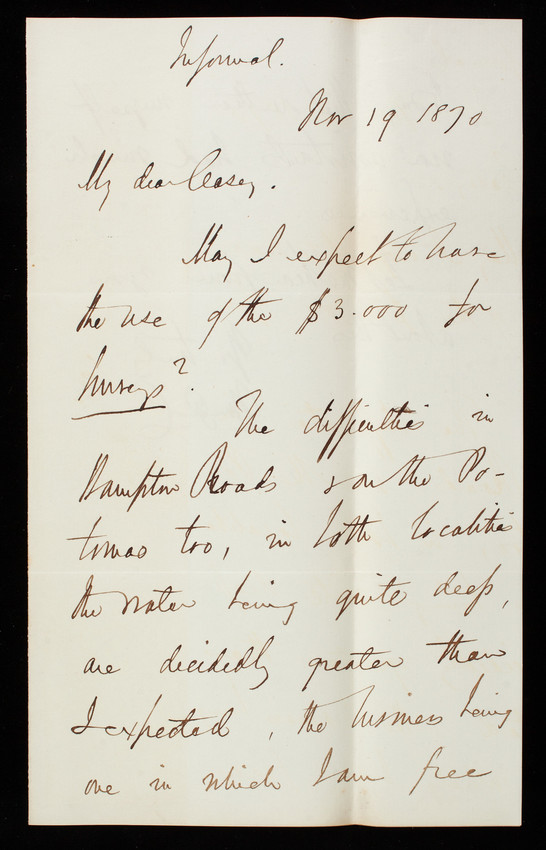 Informal.
Nov 19 1870
My dear Casey.
May I expect to have
the use of the $3.000 for
surveys?
The difficulties in
Hampton Roads & on the Po-
tomac too, in both localities
the water being quite deep,
are decidedly greater than
I expected, the business being
one in which I am free